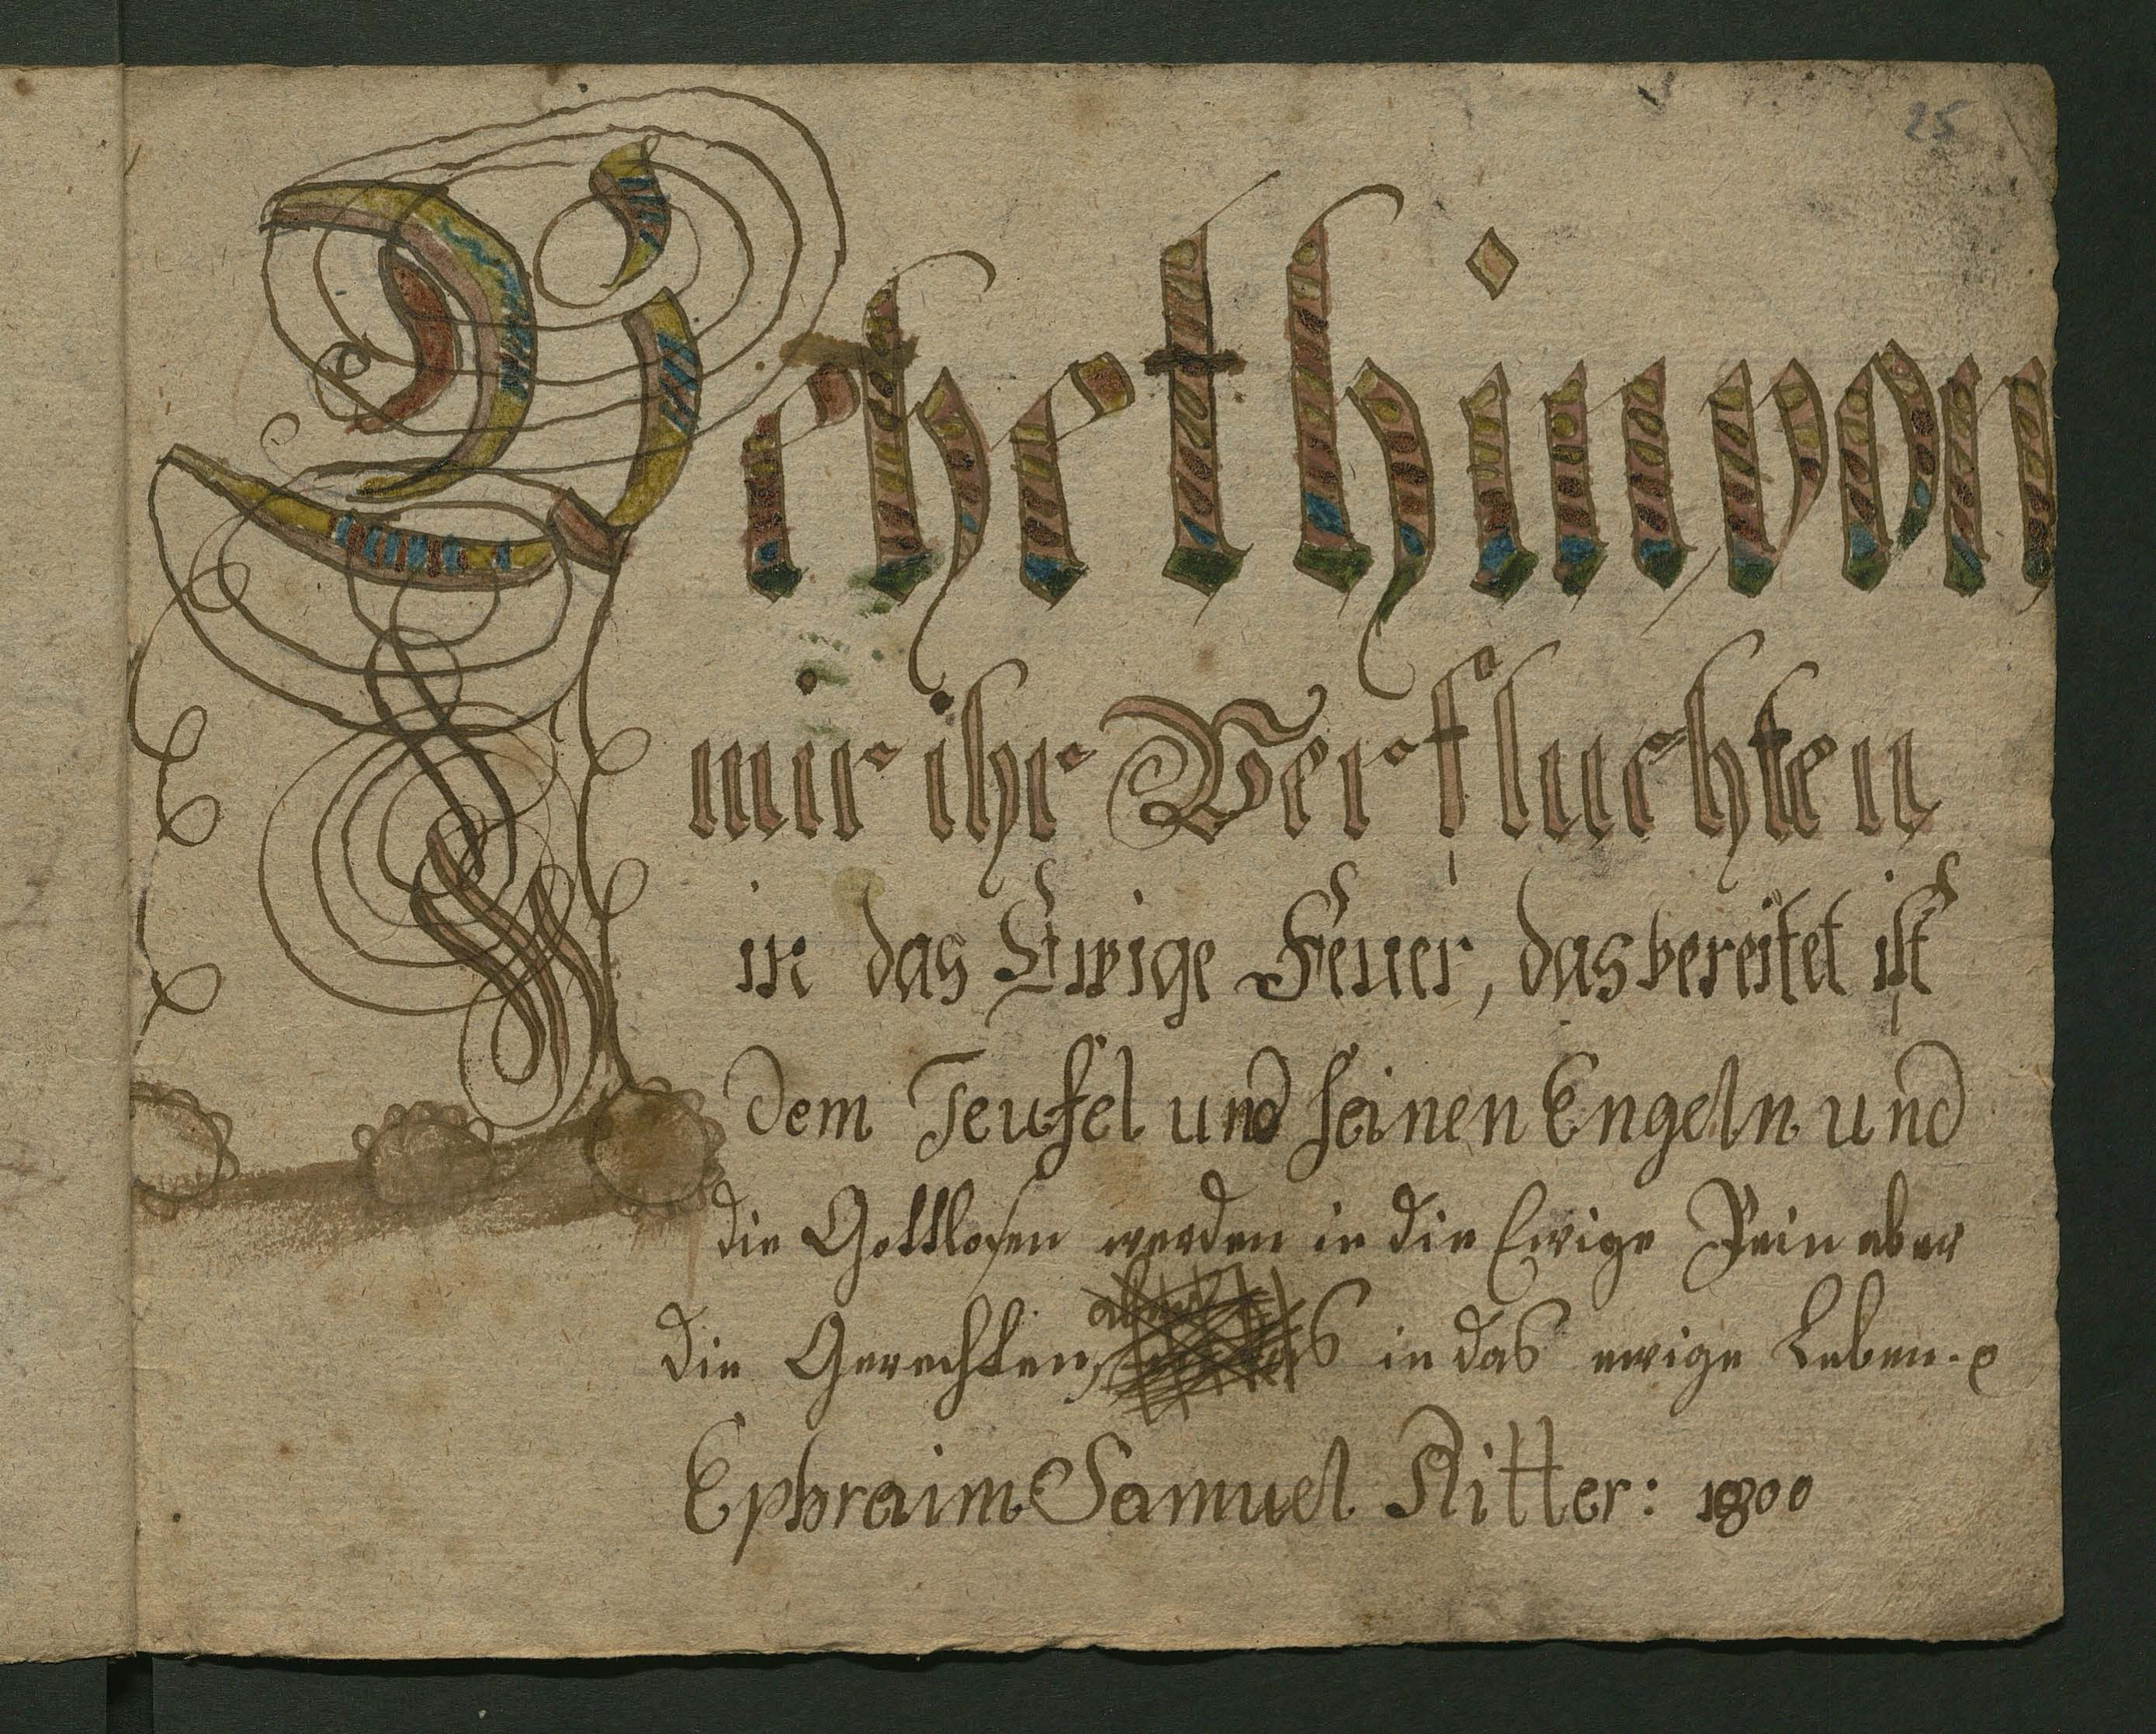 25
Gehet hin von
mir ihr Verfluchten
in das Ewige Feuer, das bereitet ist
dem Teufel und seinen Engeln und
die Gottlosen werden in die Ewige Pein aber
aber
die Gerechten, in das ewige Leben.
Ephraim Samuel Ritter: 1800